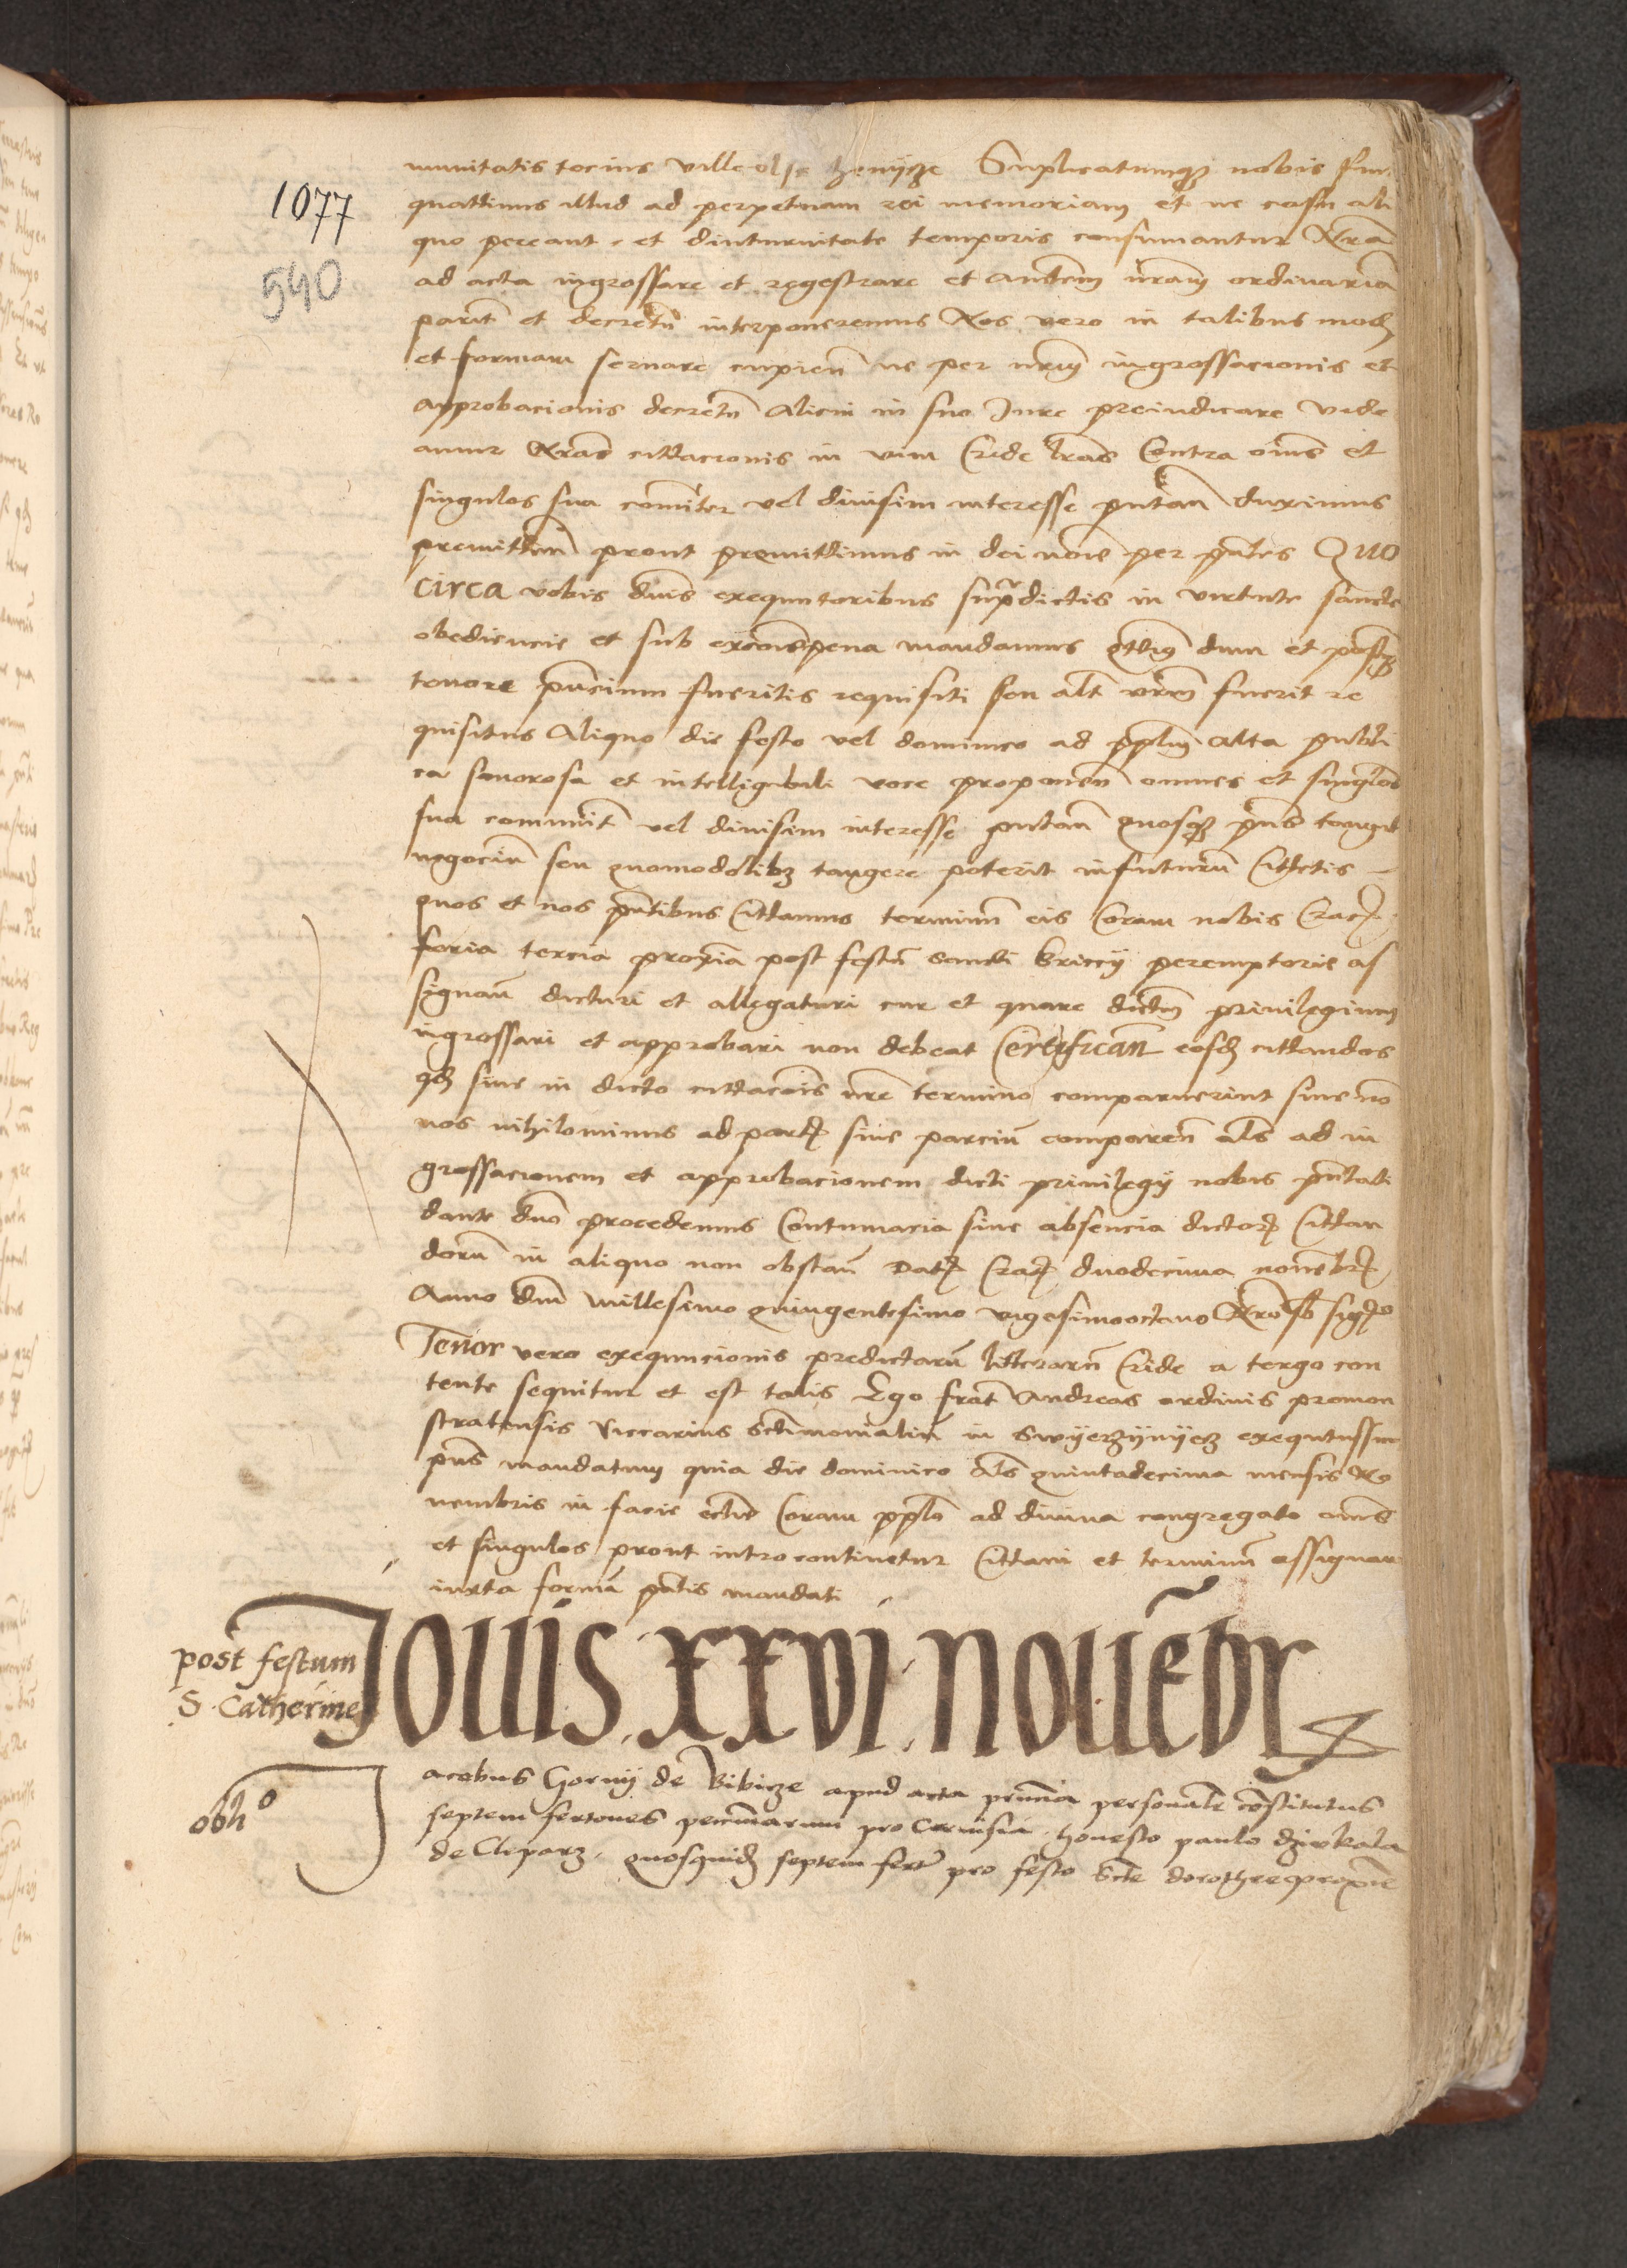 1077
540
munitatis tocius ville olsshenycze Suplicatumqz nobis fui
quattinus illud ad perpetuam rei memoriam et ne casu ali
quo pereant et diuturnitate temporis consumantur Nrã
ad acta ingrossare et regestrare et auctem nram ordinariã
parit et decretũ interponeremus Nos vero in talibus modũ
et formam seruare cupien ne per nrũm ingrossacionis et
approbacionis decretũ alicui in suo Jure preiudicare vide
amur Nras cittacionis in vim Cride lras Contra oms et
singulos sua comiter vel diuisim interesse putañ duximus
premitteñ prout premittimus in dei noie per pñtes Quo
circa vobis dñis exequutoribus supradictis in virtute sancte
obediencie et sub excois pena mandamus qttus dum et postqz
tenore pñcium fueritis requisiti seu alt vrm fuerit re
quisitus Aliquo die festo vel dominico ad pplm alta publi
ca sonorosa et intelligibili voce proponeñ omnes et singlos
sua communit vel diuisim interesse putañ quosqz pñs tangit
negociũ seu quomodolibz tangere poterit infuturũ Cittetis
quos et nos pñtibus Cittamus terminũ eis Coram nobis Crac
feria tercia proxia post festũ sancti Briccy peremptorie as
signañ dicturi et allegaturi cur et quare dictũ priuilegium
ingrossari et approbari non debeat Certificañ eosdem cittandos
qd siue in dicto cittacois nre termino comparuerint siue nõ
nos nihilominus ad partis siue parciũ comparen als ad in
grossacionem et approbacionem dicti priuilegy nobis pñtati
dante dño procedemus Contumacia siue absencia dictorum Cittan
dorũ in aliquo non obstañ Dat Crac duodecima nouebr
Anno dñi millesimo quingentesimo vigesimooctauo Nro sb sigº
Tenor vero exequucionis predictarũ litterarũ Cride a tergo con
tente sequitur et est talis Ego frat Andreas ordinis premon
stratensis viccarius sctimonialiũ in Swyerzynyecz exequtus sum
pñs mandatum quia die dominico als quintadecima mensis No
uembris in facie ecclie Coram pplo ad diuina congregato omes
et singulos prout introcontinetur Cittaui et terminũ assignaui
iuxta formã pñtis mandati
post festum
S. Catherine
Jouis. XXVI. Nouẽbr
oblº
Jacobus Gorny de Bibicze apud acta pñcia personalr cõstitutus
septem fertones pecuniarum pro Ceruisia honesto paulo dziekala
de Cleparz. quosquidem septem fert pro festo scte dorothee proxie